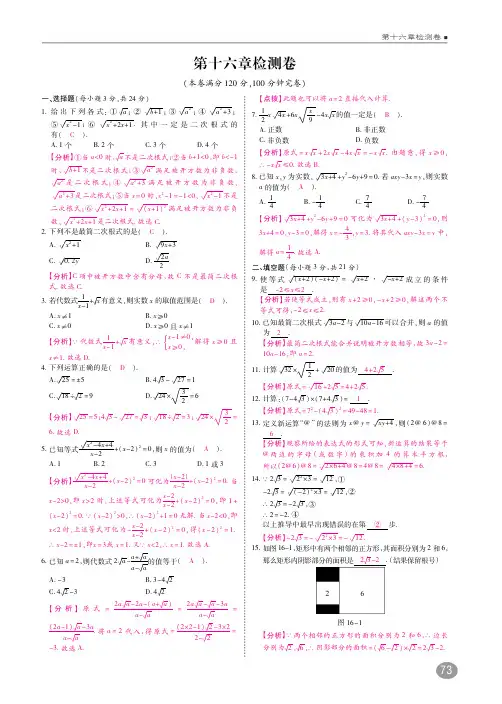 第十六章检测卷
第十六章检测卷
(本卷满分120分,100分钟完卷)
一、选择题(每小题3分,共24分)
1. 给出下列各式:① √a; ② √(b+1); ③ √(a²); ④ √(a²+3);
⑤ √(x²-1); ⑥ √(x²+2x+1). 其中一定是二次根式的
有( C ).
A. 1个 B. 2个 C. 3个 D. 4个
【分析】①当a<0时,√a不是二次根式;②当b+1<0,即b<-1
时,√(b+1)不是二次根式;③√(a²)满足被开方为非负数,
√(a²)是二次根式;④√(a²+3)满足被开方数为非负数,
√(a²+3)是二次根式;⑤当x=0时,x²-1=-1<0,√(x²-1)不是
二次根式;⑥√(x²+2x+1)=√((x+1)²)满足被开方数为非负
数,√(x²+2x+1)是二次根式.故选C.
2. 下列不是最简二次根式的是( C ).
A. √(x²+1) B. √(9x+3)
C. √(0.2y) D. √(2a)/2
【分析】C项中被开方数中含有分母,故C不是最简二次根
式.故选C.
3. 若代数式1/(x-1)+√x有意义,则实数x的取值范围是( D ).
A. x≠1 B. x≥0
C. x≠0 D. x≥0且x≠1
【分析】∵代数式1/(x-1)+√x有意义,∴{x-1≠0, x≥0, 解得x≥0且
x≠1.故选D.
4. 下列运算正确的是( D ).
A. √25=±5 B. 4√3-√27=1
C. √18÷√2=9 D. √24×√(3/2)=6
【分析】√25=5;4√3-√27=√3;√18÷√2=3;√24×√(3/2)=
6.故选D.
5. 已知等式√(x²-4x+4)/(x-2)+(x-2)²=0,则x的值为( A ).
A. 1 B. 2 C. 3 D. 1或3
【分析】√(x²-4x+4)/(x-2)+(x-2)²=0可化为|x-2|/(x-2)+(x-2)²=0.当
x-2>0,即x>2时,上述等式可化为(x-2)/(x-2)+(x-2)²=0,即1+
(x-2)²=0.∵(x-2)²>0,∴(x-2)²+1=0无解.当x-2<0,即
x<2时,上述等式可化为-(x-2)/(x-2)+(x-2)²=0,得(x-2)²=1.
∴x-2=±1,即x=3或x=1.又∵x<2,∴x=1.故选A.
6. 已知a=2,则代数式2√a-(a+√a)/(a-√a)的值等于( A ).
A. -3 B. 3-4√2
C. 4√2-3 D. 4√2
【分析】原式=(2a√a-2a-(a+√a))/(a-√a)=(2a√a-√a-3a)/(a-√a)=
((2a-1)√a-3a)/(a-√a).将a=2代入,得原式=((2×2-1)√2-3×2)/(2-√2)=
-3.故选A.
【点拨】此题也可以将a=2直接代入计算.
7. 1/2 x√(4x)+6x√(x/9)-4x√x的值一定是( B ).
A. 正数 B. 非正数
C. 非负数 D. 负数
【分析】原式=x√x+2x√x-4x√x=-x√x.由题意,得x≥0,
∴-x√x≤0.故选B.
8. 已知x,y为实数,√(3x+4)+y²-6y+9=0.若axy-3x=y,则实数
a的值为( A ).
A. 1/4 B. -1/4 C. 7/4 D. -7/4
【分析】√(3x+4)+y²-6y+9=0可化为√(3x+4)+(y-3)²=0,则
3x+4=0,y-3=0,解得x=-4/3,y=3.将其代入axy-3x=y中,
解得a=1/4.故选A.
二、填空题(每小题3分,共21分)
9. 使等式√((x+2)(-x+2))=√(x+2)·√(-x+2)成立的条件
是 -2≤x≤2 .
【分析】若使等式成立,则有x+2≥0,-x+2≥0,解这两个不
等式可得,-2≤x≤2.
10. 已知最简二次根式√(3a-2)与√(10a-16)可以合并,则a的值
为 2 .
【分析】最简二次根式能合并说明被开方数相等,故3a-2=
10a-16,即a=2.
11. 计算√32×√(1/2)+√20的值为 4+2√5 .
【分析】原式=√16+2√5=4+2√5.
12. 计算:(7-4√3)×(7+4√3)= 1 .
【分析】原式=7²-(4√3)²=49-48=1.
13. 定义新运算“@”的法则为x@y=√(xy+4),则(2@6)@8=
6 .
【分析】观察所给的表达式的形式可知,新运算的结果等于
@两边的字母(或数字)的乘积加4的算术平方根,
所以(2@6)@8=√(2×6+4)@8=4@8=√(4×8+4)=6.
14. ∵2√3=√(2²×3)=√12,①
-2√3=√((-2)²×3)=√12,②
∴2√3=-2√3,③
∴2=-2.④
以上推导中最早出现错误的在第 ② 步.
【分析】-2√3=-√(2²×3)=-√12.
15. 如图16-1,矩形中有两个相邻的正方形,其面积分别为2和6,
那么矩形内阴影部分的面积是 2√3-2 .(结果保留根号)
2 6
图16-1
【分析】∵两个相邻的正方形的面积分别为2和6,∴边长
分别为√2,√6,∴阴影部分的面积=(√6-√2)×√2=2√3-2.
73